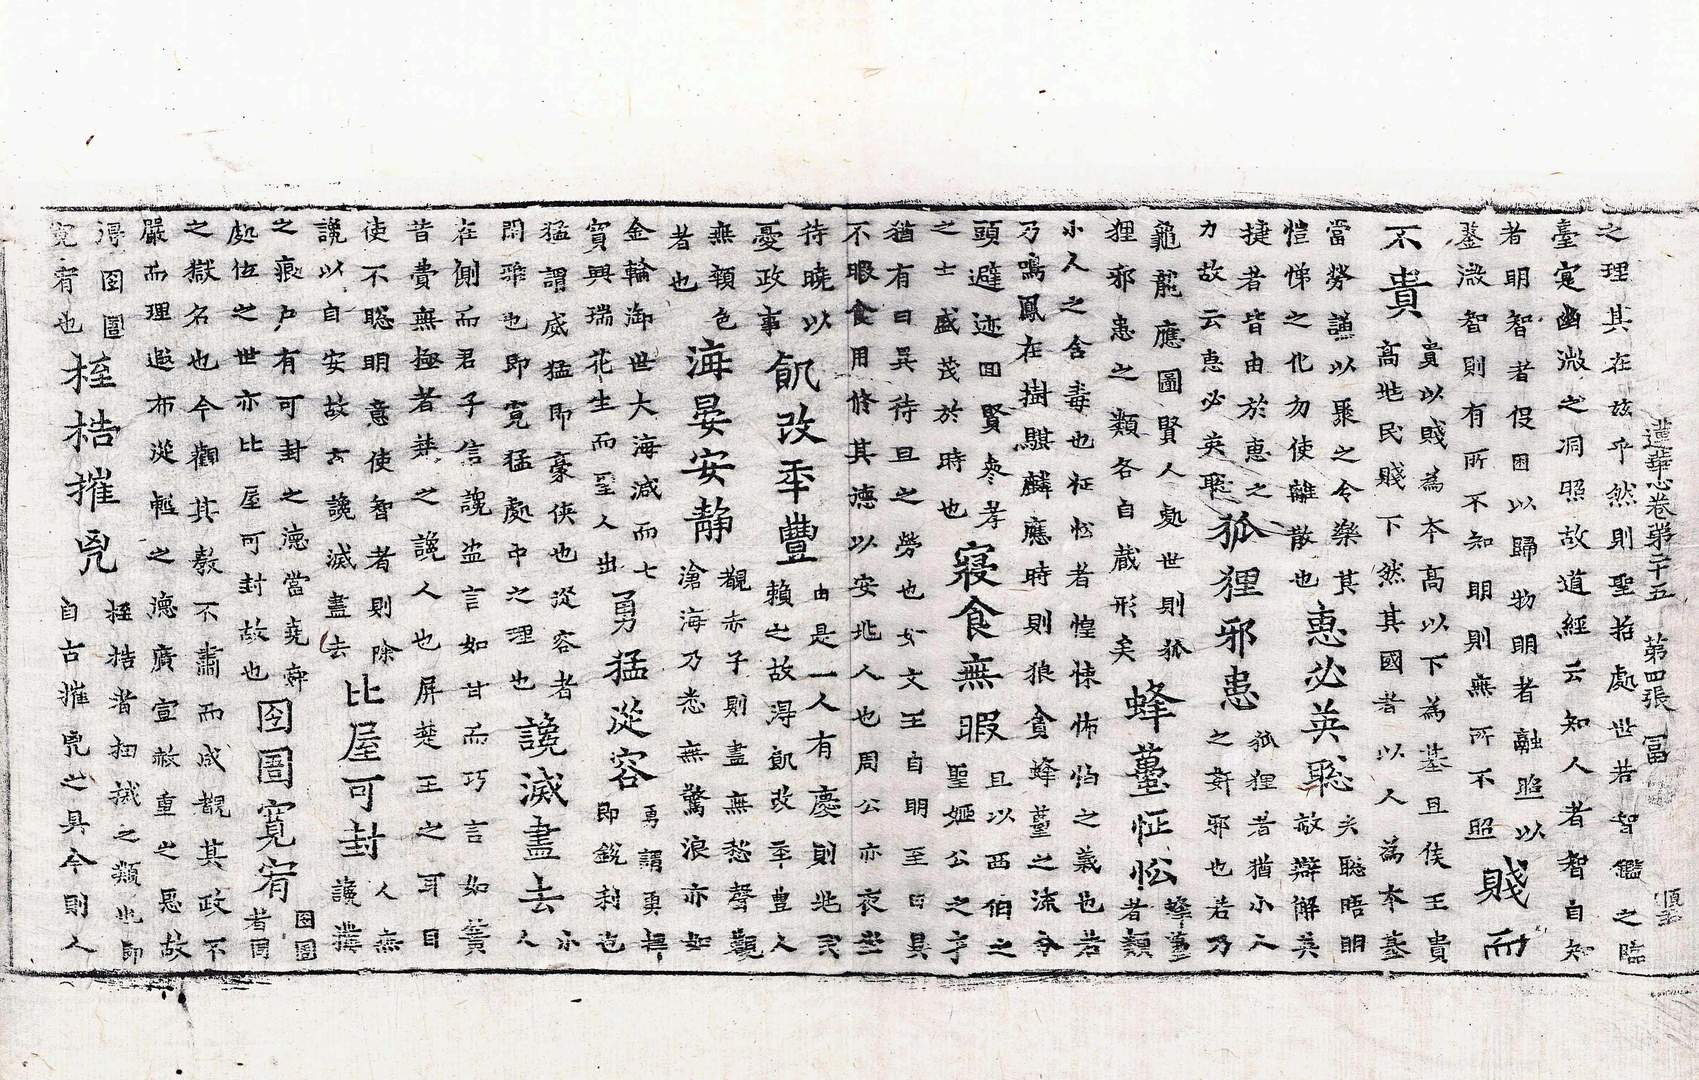 蓮華心卷第二十五 第四張 冨
之理其在玆乎然則聖哲處世若智鑑之臨
臺寔幽微之洞照故道經云知人者智自知
者明智者役因以歸物明者融照以
鍳微智則有所不知明則無所不照
賤而
不貴
貴以賤為本高以下為基且侯王貴
高也民賤下然其國者以人為本基
當勞謙以聚之令樂其
愷悌之化勿使離散也
惠必英聡
夫聡晤明
敵辯解英
捷者皆由於惠之
力故云惠必英聡
狐狸邪患
狐狸者猶小人
之奸邪也若乃
龜龍應圖賢人處世則狐
狸邪患之類各自蔵形矣
蜂蠆怔忪
蜂蠆
者類
小人之含毒也怔忪者惶悚怖怕之義也若
乃鳴鳳在樹騏麟應時則狼貪蜂蠆之流分
頭避迹
之士盛茂於時也
寢食無暇
且以西伯之
聖姬公之才
猶有日昃待旦之勞也如文王自明至日昃
不暇食用脩其德以安兆人也周公亦夜坐
待曉以
憂政事
飢改年豐
由是一人有慶則兆民
賴之故淂飢改年豊人
無顇色
者也
海晏安静
覩赤子則盡無愁聲觀
滄海乃悉無驚浪亦如
金輪御世大海減而七
寳興瑞花生而聖人出
勇猛從容
勇謂勇捍
即銳利也
猛謂威猛猛即豪俠也從容者
閑雅也即寛猛處中之理也
讒滅盡去
小
人
在側而君子信讒盗言如甘而巧言如簧
昔費無極者楚之讒人也屏楚王之耳目
使不聡明意使智者則除
讒以自安故云讒滅盡去
比屋可封
人無
讒搆
之痕户有可封之德當堯舜
處位之世亦比屋可封故也
囹圄寛宥
囹圄
者周
之獄名也今觀其教不肅而成覩其政不
嚴而理遐布從輕之德廣宣赦重之恩故
淂囹圄
寛宥也
桎梏摧兇
桎梏者杻械之類也即
自古摧兇之具今則人